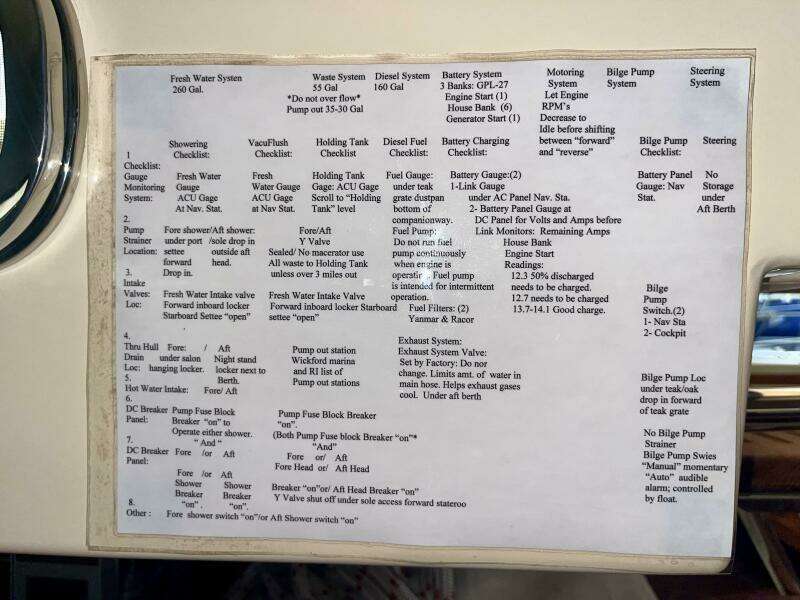 Fresh Water Systen Waste System Diesel System Battery System Motoring Bilge Pump Steering
260 Gal. 55 Gal 160 Gal 3 Banks: GPL-27 System System System
*Do not over flow* Engine Start (1) Let Engine
Pump out 35-30 Gal House Bank (6) RPM's
Generator Start (1) Decrease to
Idle before shifting
Showering VacuFlush Holding Tank Diesel Fuel Battery Charging between “forward” Bilge Pump Steering
1 Checklist: Checklist: Checklist Checklist: Checklist: and “reverse” Checklist:
Checklist:
Gauge Fresh Water Fresh Holding Tank Fuel Gauge: Battery Gauge:(2) Battery Panel No
Monitoring Gauge Water Gauge Gage: ACU Gage under teak 1-Link Gauge Gauge: Nav Storage
System: ACU Gage ACU Gage Scroll to “Holding grate dustpan under AC Panel Nav. Sta. Stat. under
At Nav. Stat. at Nav Stat. Tank” level bottom of 2- Battery Panel Gauge at Aft Berth
2. companionway. DC Panel for Volts and Amps before
Pump Fore shower/Aft shower: Fore/Aft Fuel Pump: Link Monitors: Remaining Amps
Strainer under port /sole drop in Y Valve Do not run fuel House Bank
Location: settee outside aft Sealed/ No macerator use pump continuously Engine Start
forward head. All waste to Holding Tank when engine is Readings:
3. Drop in. unless over 3 miles out Fuel pump 12.3 50% discharged
Intake is intended for intermittent needs to be charged. Bilge
Valves: Fresh Water Intake valve Fresh Water Intake Valve operation. 12.7 needs to be charged Pump
Loc: Forward inboard locker Forward inboard locker Starboard Fuel Filters: (2) 13.7-14.1 Good charge. Switch.(2)
Starboard Settee “open” settee “open” Yanmar & Racor 1- Nav Sta
2- Cockpit
4. Exhaust System:
Thru Hull Fore: / Aft Pump out station Exhaust System Valve:
Drain under salon Night stand Wickford marina Set by Factory: Do nor
Loc: hanging locker. locker next to and RI list of change. Limits amt. of water in
5. Berth. Pump out stations main hose. Helps exhaust gases Bilge Pump Loc
Hot Water Intake: Fore/ Aft cool. Under aft berth under teak/oak
6. drop in forward
DC Breaker Pump Fuse Block Pump Fuse Block Breaker of teak grate
Panel: Breaker “on” to “on”.
Operate either shower. (Both Pump Fuse block Breaker “on”* No Bilge Pump
7. “ And “ “And” Strainer
DC Breaker Fore /or Aft Fore or/ Aft Bilge Pump Swies
Panel: Fore Head or/ Aft Head “Manual” momentary
Fore /or Aft “Auto” audible
Shower Shower Breaker “on”or/ Aft Head Breaker “on” alarm; controlled
Breaker Breaker Y Valve shut off under sole access forward stateroo by float.
8. “on” . “on”.
Other : Fore shower switch “on”/or Aft Shower switch “on”